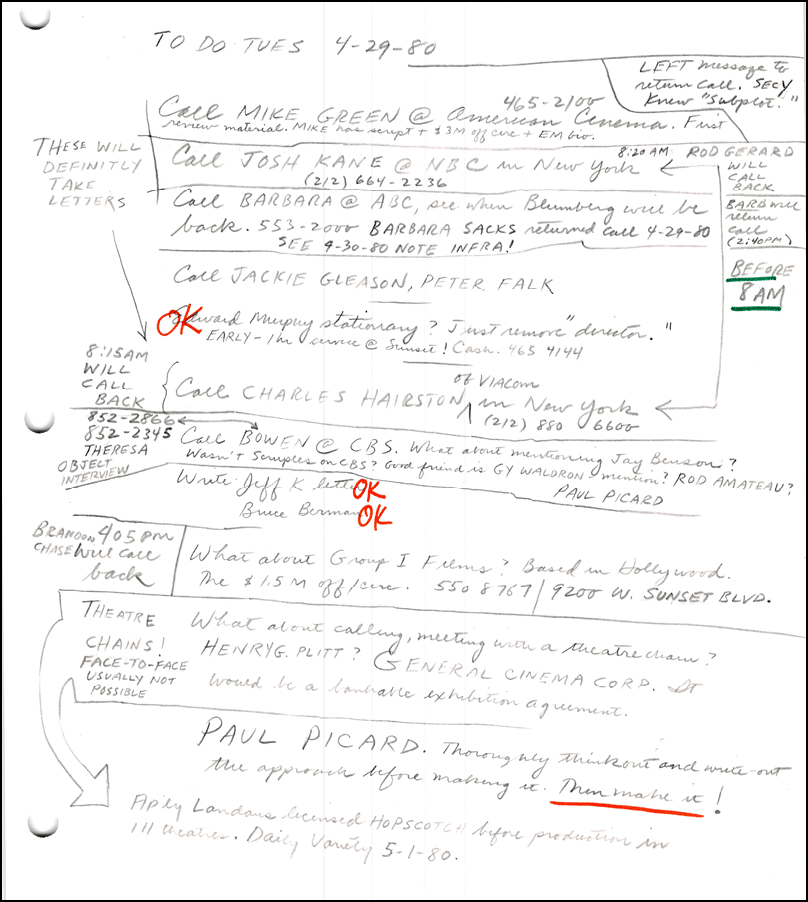 TO DO TUES 4-29-80
LEFT message to
return call. SECY
Knew "Subplot."
465-2100
Call MIKE GREEN @ American Cinema. First
review material. MIKE has script + $3M off/circ + EM bio.
THESE WILL
DEFINITLY
TAKE
LETTERS
8:20 AM ROD GERARD
WILL
CALL
BACK
Call JOSH KANE @ NBC in New York
(212) 664-2236
Call BARBARA @ ABC, see when Blumberg will be
back. 553-2000 BARBARA SACKS returned call 4-29-80
SEE 4-30-80 NOTE INFRA!
BARB will
return
call
(2:40PM)
BEFORE
8AM
Call JACKIE GLEASON, PETER FALK
OK
Edward Murphy stationary? Just remove "director."
EARLY - 1 hr service @ Sunset! Cash. 465 4144
8:15AM
WILL
CALL
BACK
of VIACOM
Call CHARLES HAIRSTON ^ in New York
(212) 880 6600
852-2866
852-2345
THERESA
OBJECT
INTERVIEW
Call BOWEN @ CBS. What about mentioning Jay Benson?
Wasn't Scruples on CBS? Good friend is GY WALDRON - mention? ROD AMATEAU?
PAUL PICARD
Write Jeff K letter OK
Bruce Berman OK
BRANDON 405 PM
CHASE will call
back
What about Group I Films? Based in Hollywood.
The $1.5 M off/circ. 550 8767 / 9200 W. SUNSET BLVD.
THEATRE
CHAINS!
FACE-TO-FACE
USUALLY NOT
POSSIBLE
What about calling, meeting with a theatre chain?
HENRY G. PLITT? GENERAL CINEMA CORP. It
would be a bankable exhibition agreement.
PAUL PICARD. Thoroughly think out and write-out
the approach before making it. Then make it!
Aply Landaus licensed HOPSCOTCH before production in
111 theatres. Daily Variety 5-1-80.